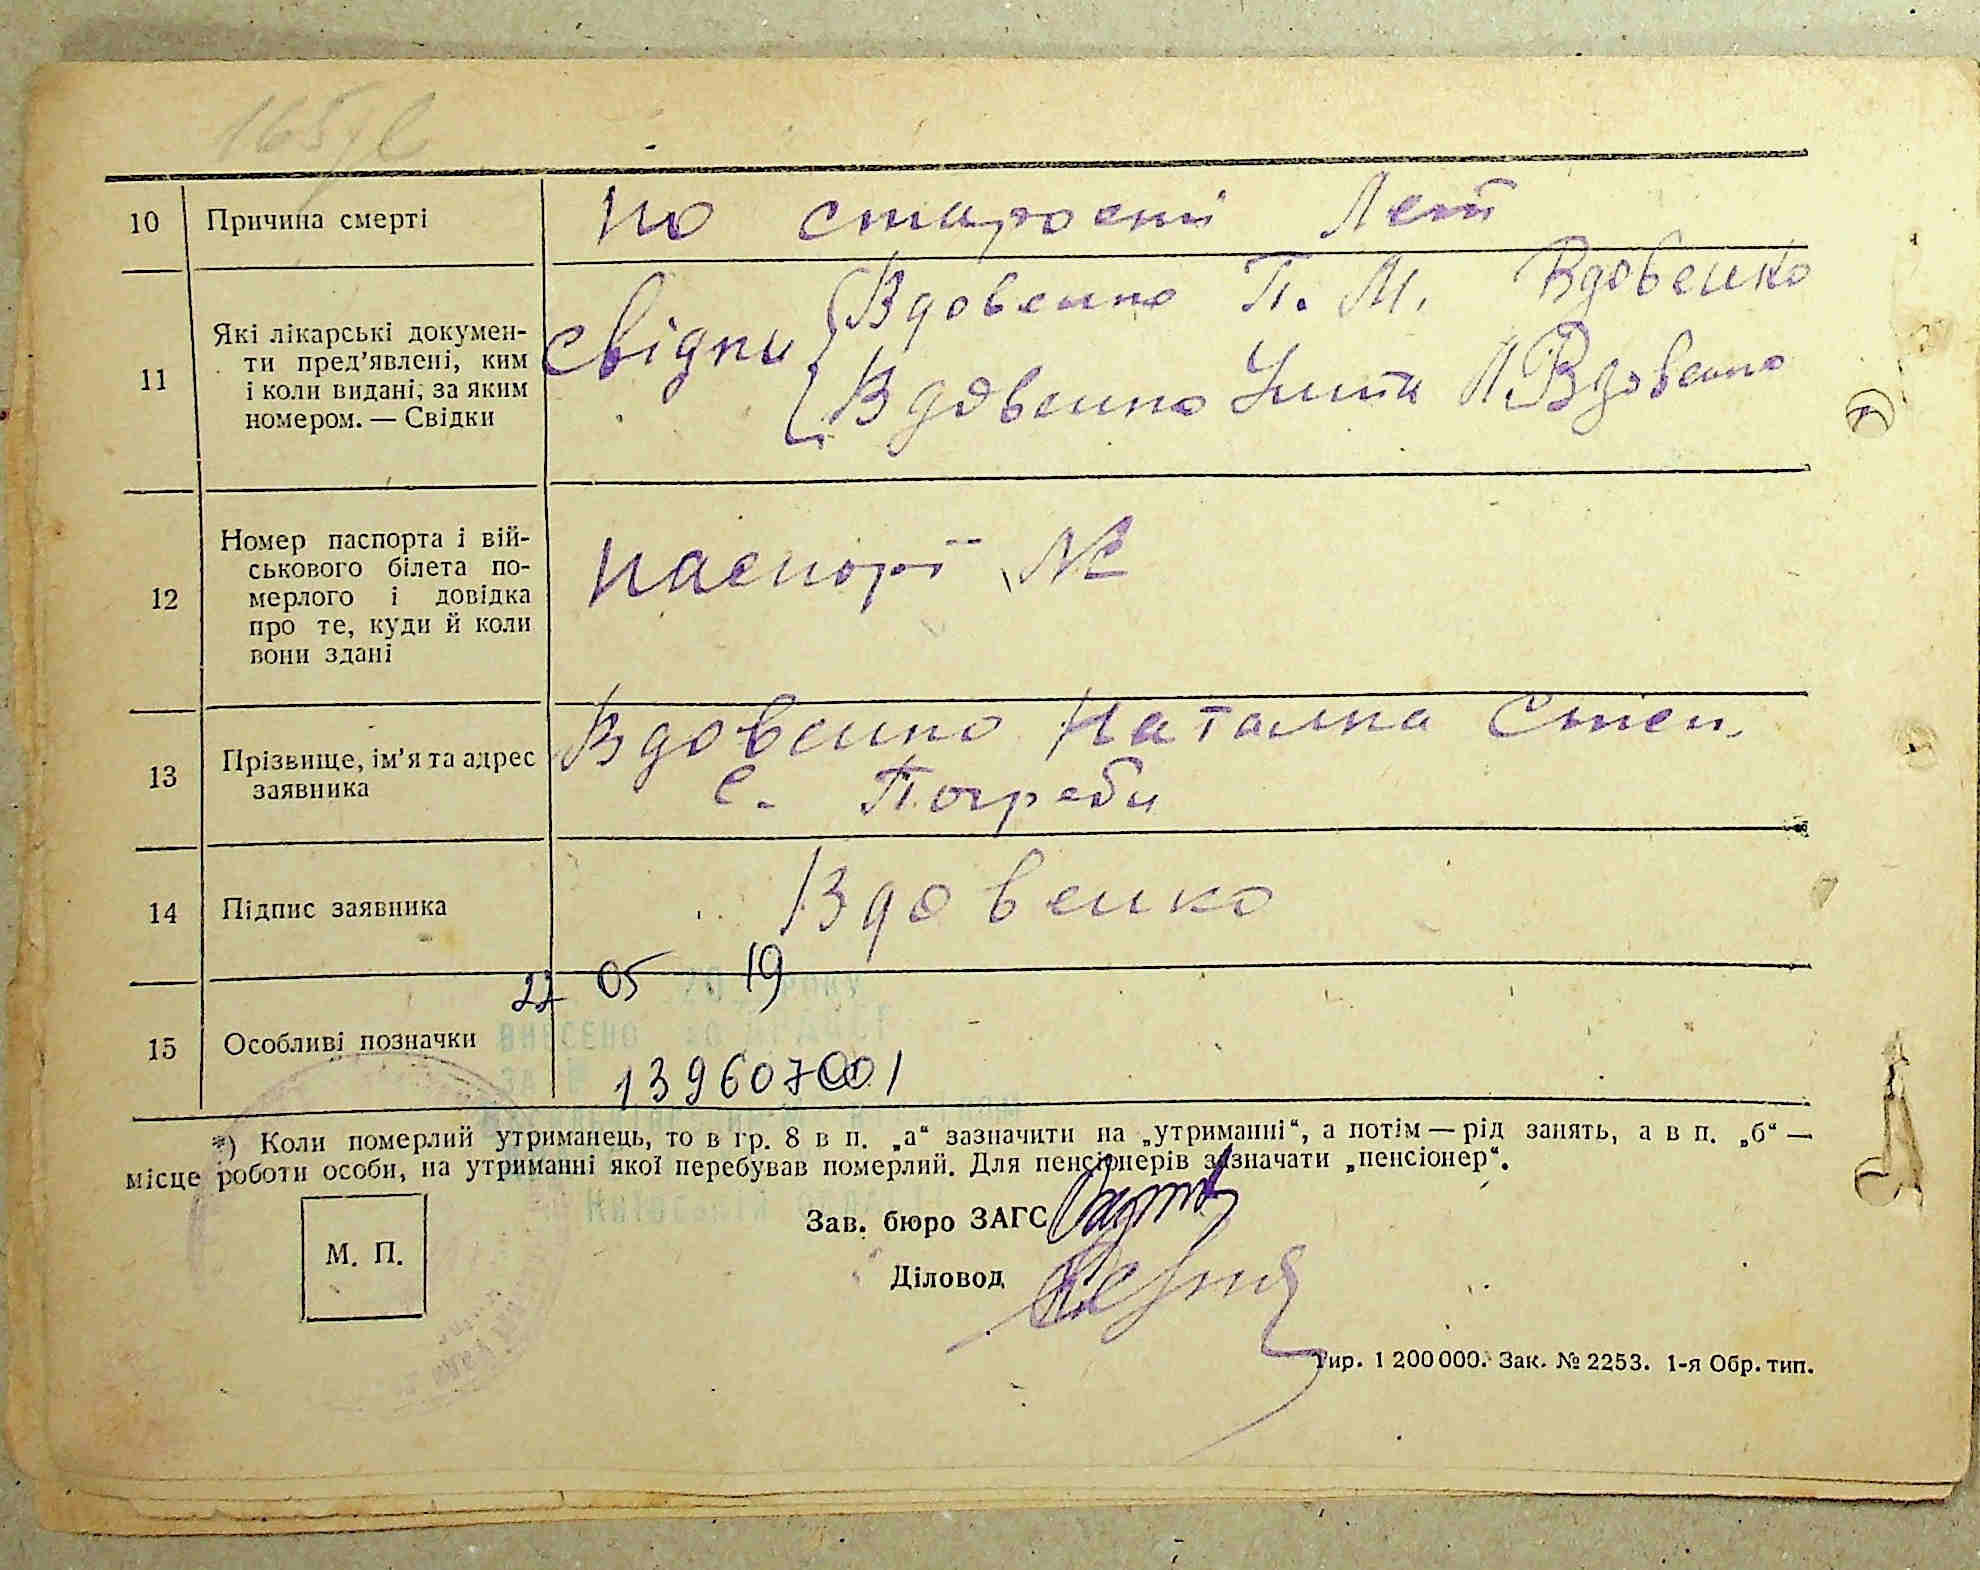 10 Причина смерті по старості Лет
11 Які лікарські докумен-
ти пред’явлені, ким
і коли видані, за яким
номером. — Свідки
Свідки { Вдовенко П. М. Вдовенко
Вдовенко Вдовенко
12 Номер паспорта і вій-
ськового білета по-
мерлого і довідка
про те, куди й коли
вони здані
паспорт №
13 Прізвище, ім’я та адрес
заявника
Вдовенко Наталка Степ.
с. Погреби
14 Підпис заявника Вдовенко
22 05 20 19 РОКУ
15 Особливі позначки
ВНЕСЕНО ДО ДРАЦСГ
ЗА №
139607001
*) Коли померлий утриманець, то в гр. 8 в п. „а“ зазначити на „утриманні“, а потім — рід занять, а в п. „б“ —
місце роботи особи, на утриманні якої перебував померлий. Для пенсіонерів зазначати „пенсіонер“.
Зав. бюро ЗАГС
М. П.
Діловод
Тир. 1 200 000. Зак. № 2253. 1-я Обр. тип.